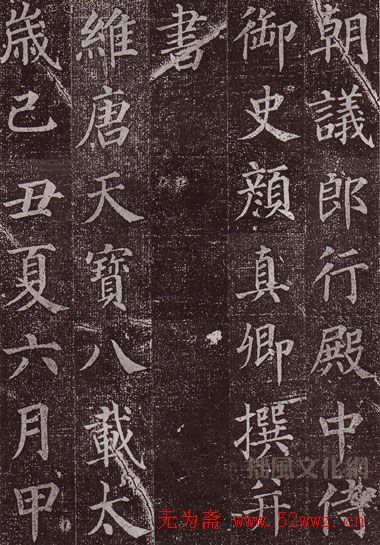 朝議郎行殿中侍
御史顔真卿撰并
書
維唐天寶八載太
歳己丑夏六月甲
文化網
无为斋 www.52wwz.cn